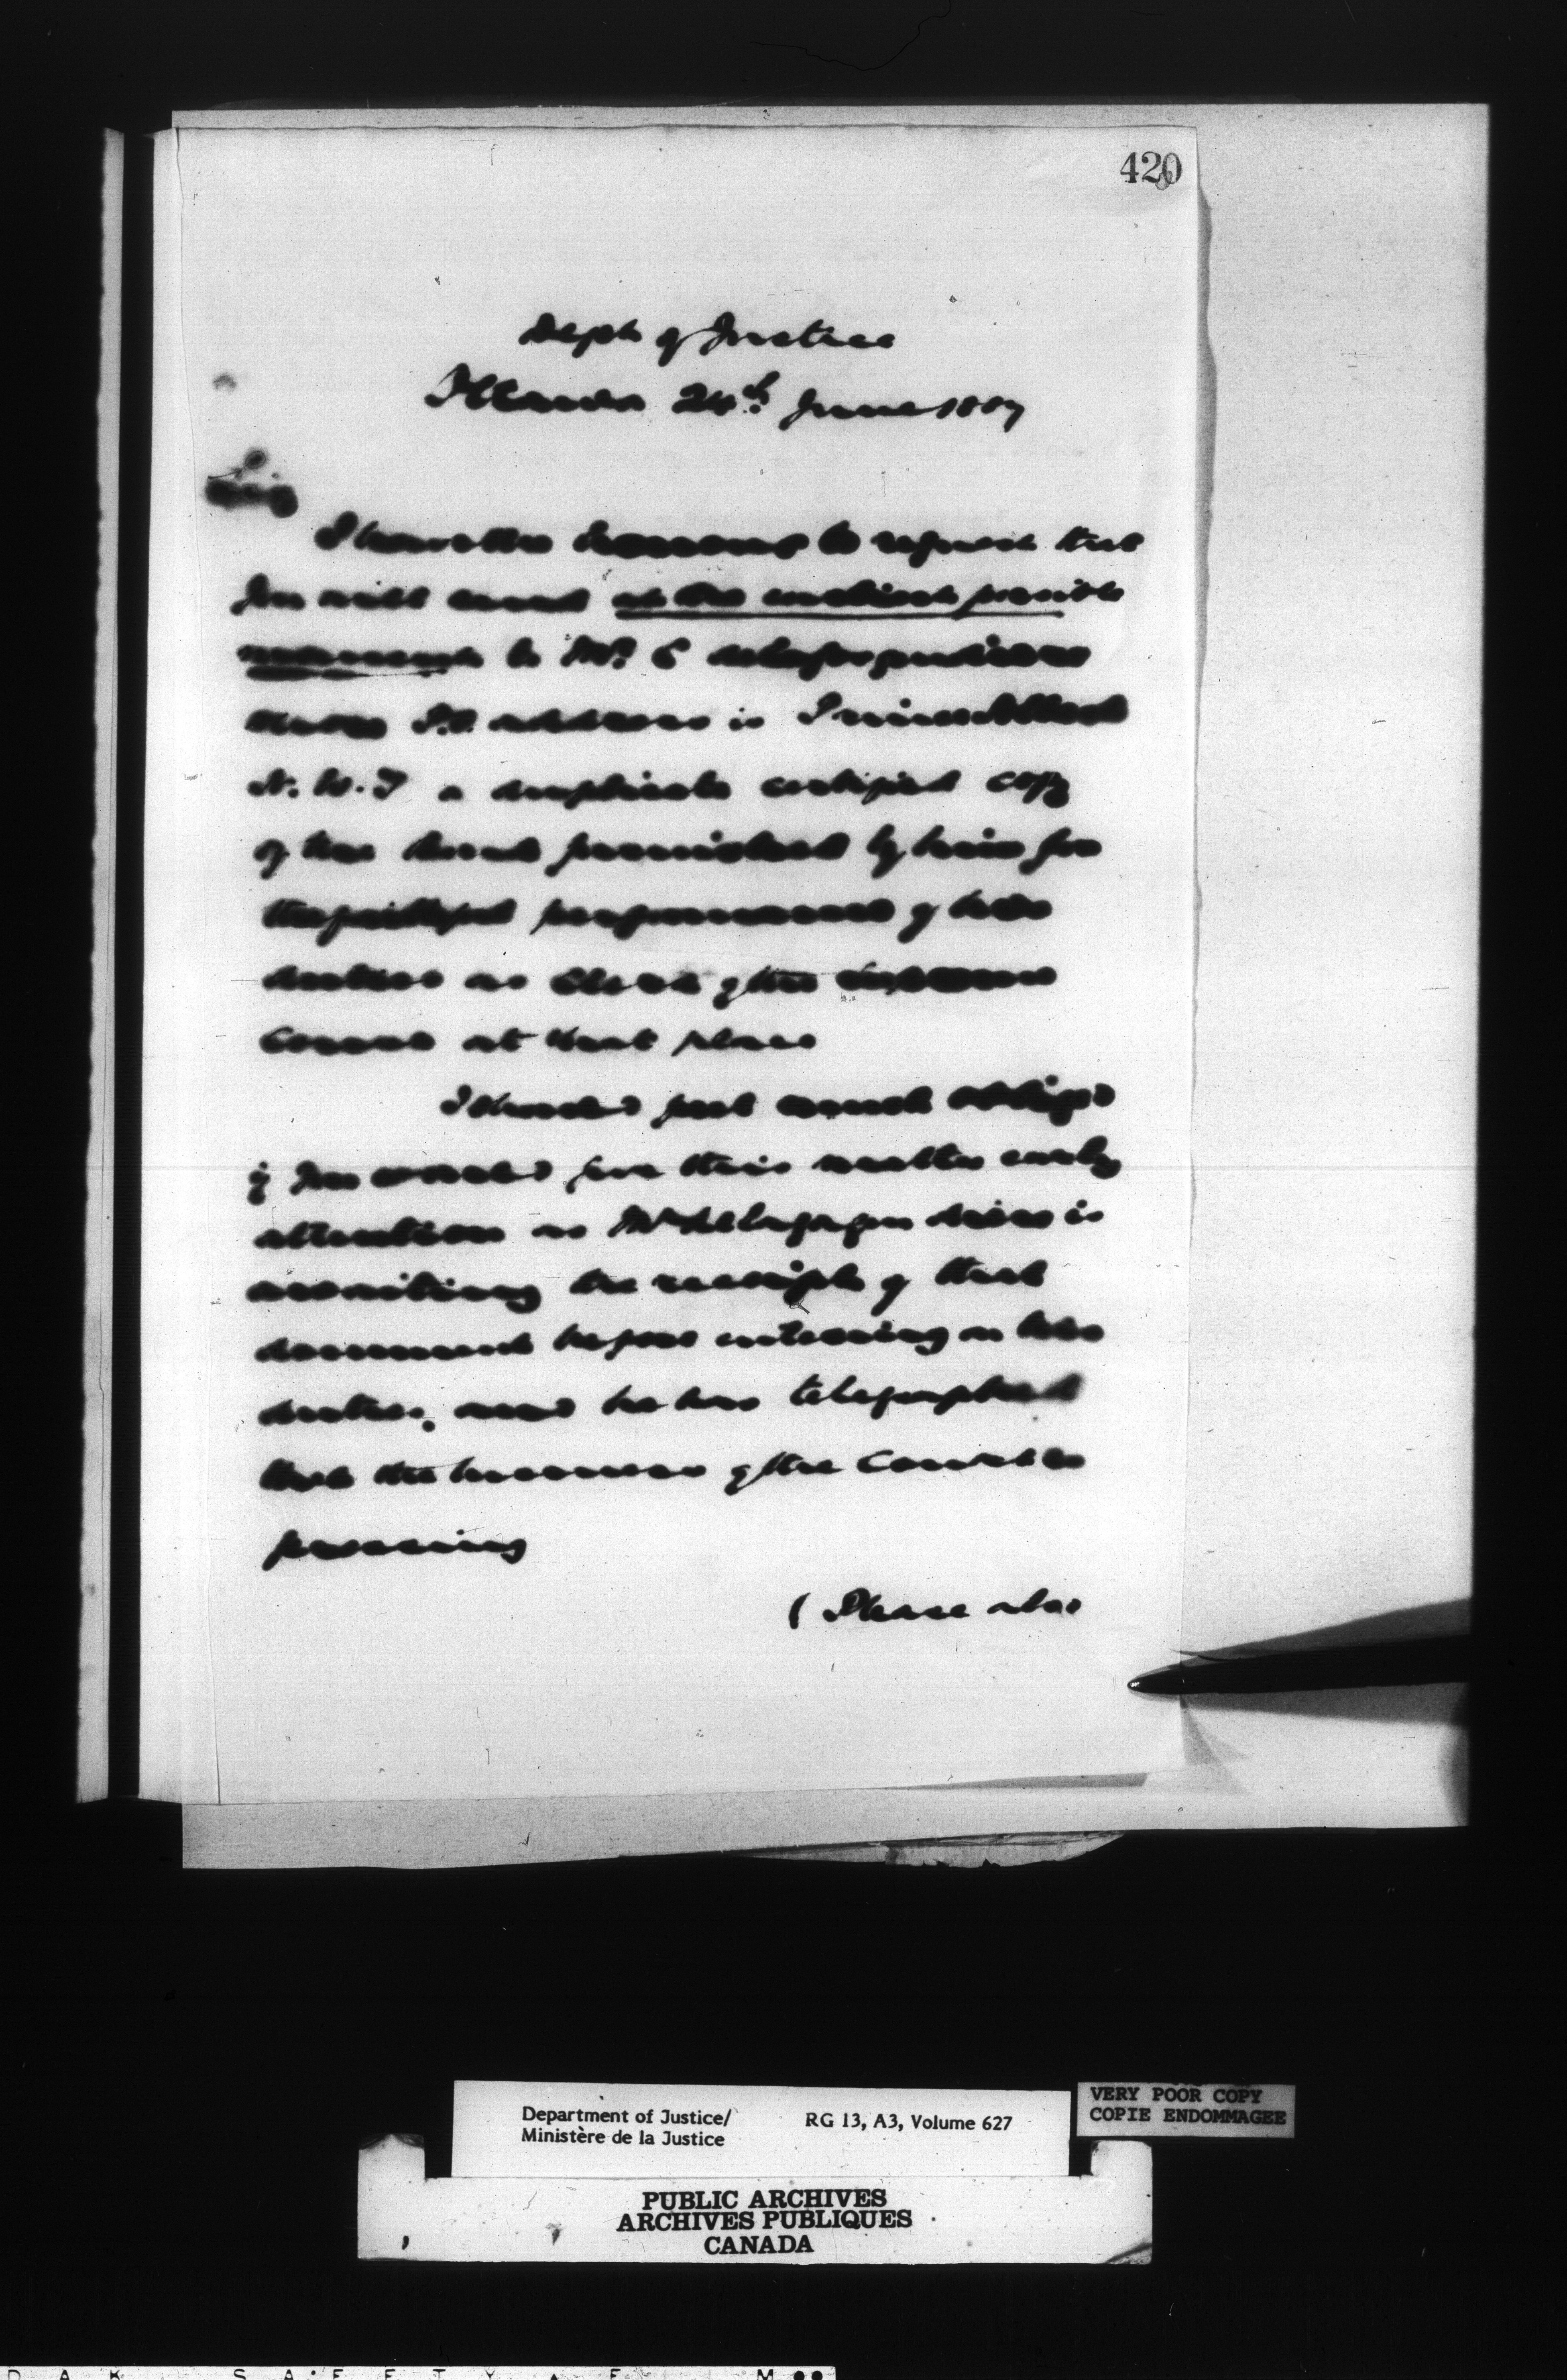 420
Dept of Justice
Ottawa 24th June 1887
Sir
I have the honour to request that
you will send at the earliest possible
moment to Mr. C
whose P.O. address is
N.W.T a duplicate certified copy
of the bond furnished by him for
the faithful performance of his
duties as Clerk of the Supreme
Court at that place
I should feel much obliged
if you would give this matter early
attention as Mr is
awaiting the receipt of that
document before entering on his
duties, and he has telegraphed
that the business of the Court is
pressing
(Please also
Department of Justice/
Ministère de la Justice
RG 13, A3, Volume 627
VERY POOR COPY
COPIE ENDOMMAGEE
PUBLIC ARCHIVES
ARCHIVES PUBLIQUES
CANADA